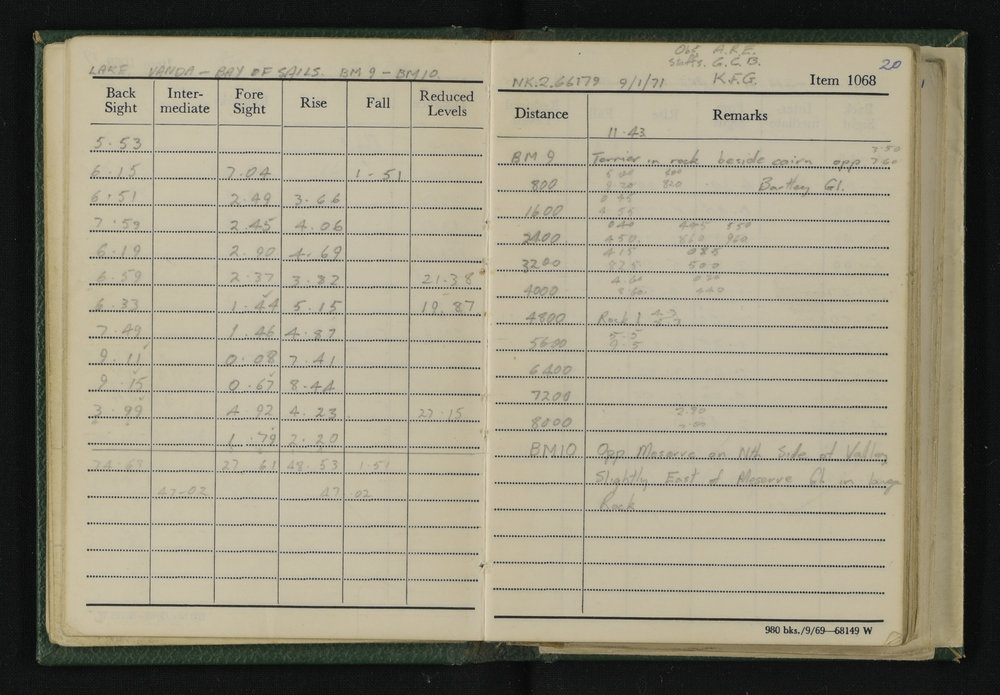 LAKE VANDA - BAY OF SAILS. BM 9 - BM10.
Back Sight Inter-mediate Fore Sight Rise Fall Reduced Levels
5.53
6.15 7.04 1.51
6.51 2.49 3.66
7.59 2.45 4.06
6.19 2.90 4.69
6.59 2.37 3.82 21.38
6.33 1.44 5.15 19.87
7.49 1.46 4.87
9.11 0.08 7.41
9.15 0.67 8.44
3.99 4.92 4.23
1.79 2.20
74.63 27.61 48.53 1.51
47-02 47.02
Obs. A.R.E. 20
Staffs. G.C.B.
NK.2.66179 9/1/71 K.F.G. Item 1068
Distance Remarks
11.43
BM 9 Terrier in rock beside cairn opp
800 Bartley Gl.
1600
2400
3200
4000
4800 Rock 1
5600
6400
7200
8000
BM10 Opp Meserve on Nth Side of Valley
Slightly East of Meserve Gl in large
Rock
980 bks./9/69—68149 W